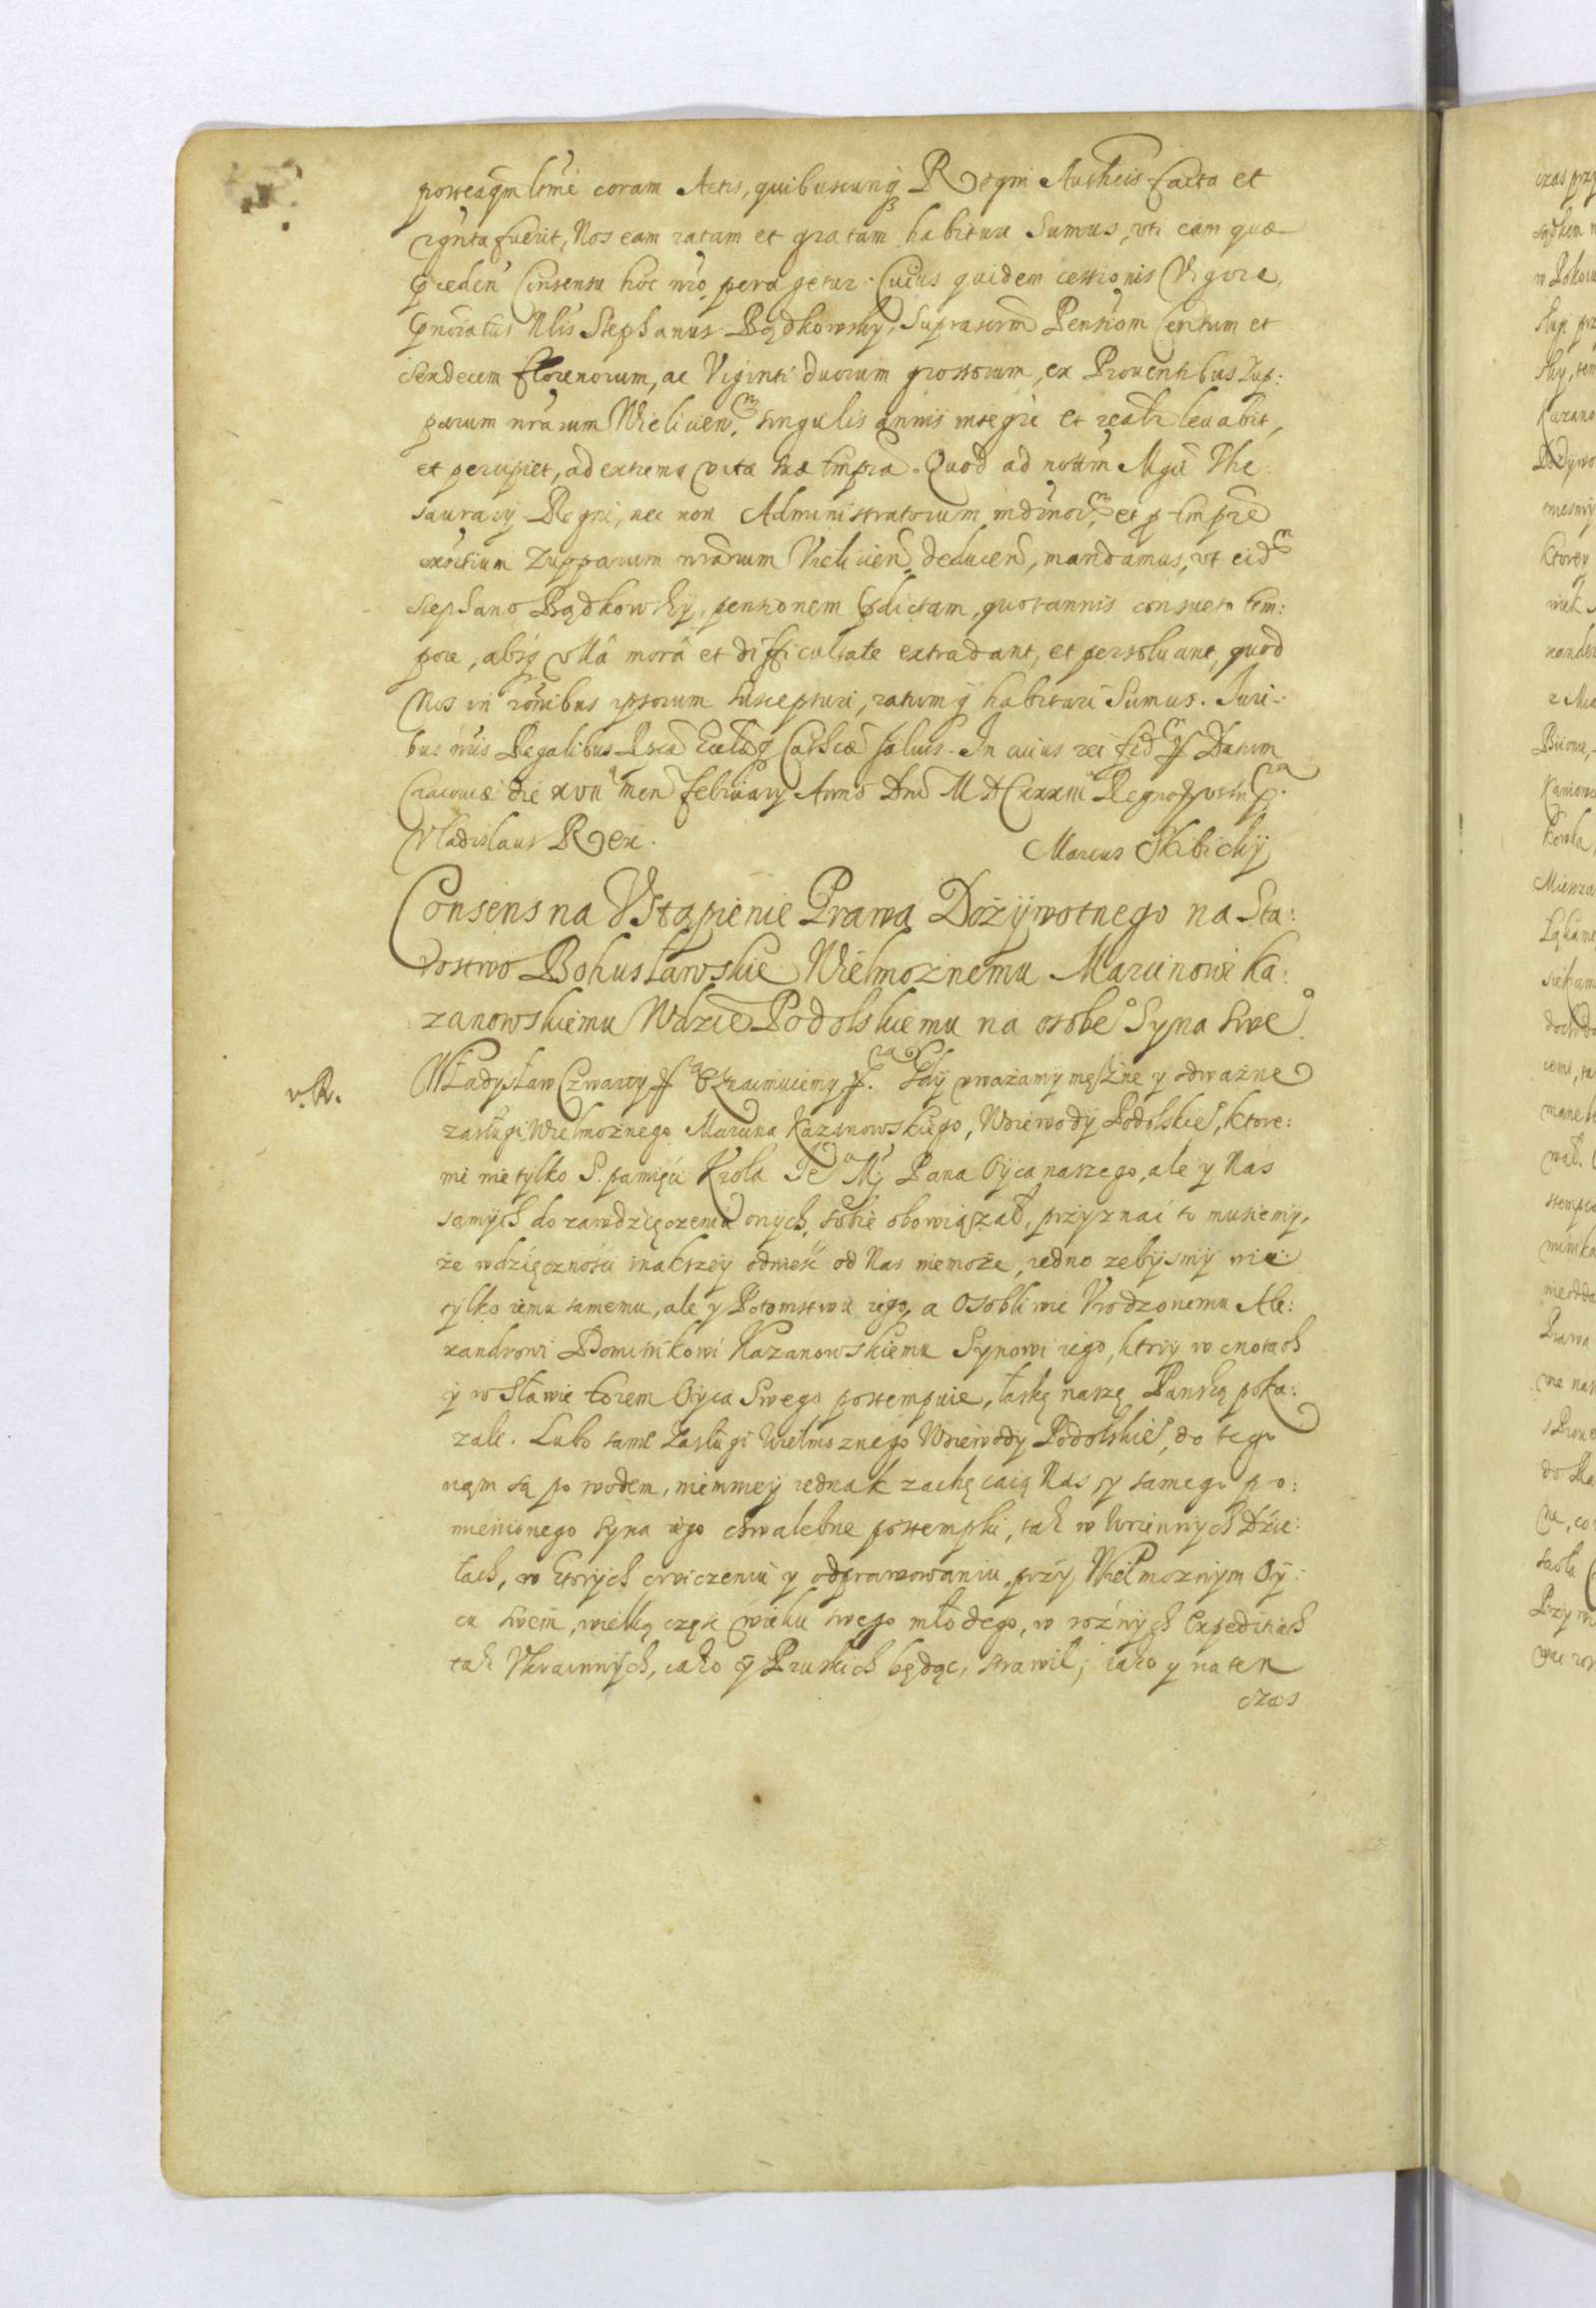 posteaqm lrme coram Actis, quibuscunq Regni Authcis facta et
rignita fuerit, Nos eam ratam et gratam habituri Sumus, vti eam quæ
præcedẽn Consensu hoc nr̃o peragetur. Cuius quidem cessionis Vigore,
Gnõratus Nlis Stephanus Bądkowsky, suprascrm Pensiom Centum et
sendecem florenorum, ac Viginti duorum grossorum, ex Prouentibus Zup:
parum nrãrum Wielicien, singulis annis integre et realr leuabit,
et percipiet, ad extrema vitæ suæ tmpra. Quod ad notitm Mgci The
saurarij Regni, nec non Administratorum modernor, et p tmpre
exñtium Zupparum nrãrum Vielicien deducen, mandamus, vt eidm
Stephano Bądkowskij, pensionem pdictam, quotannis consueto tem:
pore, absq vlla mora et difficultate extradant, et persoluant, quod
Nos in rõnibus ipsorum suscepturi, ratumq habituri Sumus. Iuri:
bus nris Regalibus Reipcæ Ecclæq Cathcæ saluis. In cuius rei fidem Datum
Cracouiæ die xvii men february Anno Dni MDCxxxiii Regnor vero
Vladislaus Rex.
Marcus Skibichij
Consens na Vstąpienie Prawa Dożijwotnego na Sta:
rostwo Bohusławskie Wielmożnemu Marcinowi Ka:
zanowskiemu Wdzie Podolskiemu na osobę Syna swe°
v.R.
Władysław Czwarty Oznaimuiemy Gdy vważamy mężne y odważne
zasługi Wielmożnego Marcina Kazanowskiego, Woiewody Podolskie, ktore:
mi nie tylko S. pamięci Krola Je° Mci Pana Oyca naszego, ale y Nas
samych do zawdzięczenia onych sobie obowiązał, przyznać to musiemy,
że wdzięczności inakszey odnieść od Nas niemoże, iedno zebysmy nie
tylko iemu samemu, ale y Potomstwu iego, a osobliwie Vrodzonemu Ale:
xandrowi Dominikowi Kazanowskiemu Synowi iego, ktory w cnotach
y w sławie torem Oyca Swego postempuie, łaskę naszę Pańską poka:
zali. Lubo same zasługi Wielmożnego Woiewody Podolskie, do tego
nam są powodem, niemniey iednak zachęcaią Nas y samego po:
mienionego Syna iego chwalebne postempki, tak w Woiennych Dzie:
łach, w ktorych cwiczeniu y odprawowaniu przy Wielmożnym Oy:
cu swem, wielką częsc wieku swego młodego, w rożnych Expedicich
tak Vkrainnych, iako y Pruskich będąc, strawił; iako y na ten
czas